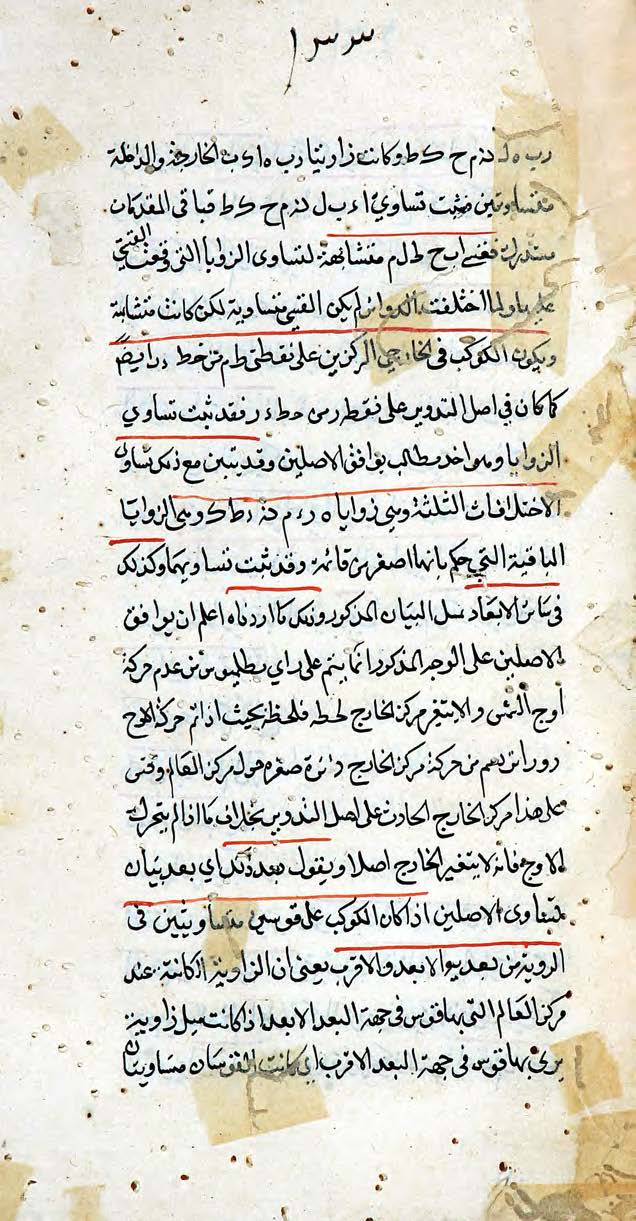 ١٣٣
رب ه ل ه ز م ح ك ط وكانت زاويتا د ب ه ا ك ب الخارجة والداخلة
متساويتين فثبت تساوي ا ء ب ل ه ز م ح ك ط فباقي المقدمات
مستدرك فقسي ا ب ح ط ل م متشابهة لتساوى الزوايا التى وقعت القسي
عليها ولما اختلفت الدوائر لم يكن القسي متساوية لكن كانت متشابهة
ويكون الكوكب فى الخارجي المركزين على نقطتى ط م من خط ء ر ايضا
كما كان فى اصل التدوير على نقطة ر من خط ء ر فقد ثبت تساوي
الزوايا وهو اخذ مطالب توافق الاصلين وقد يتبين مع ذلك تساوى
الاختلافات الثلثة وهى زوايا ه ر ء م ء ط ك وهى الزوايا
الباقية التي حكم بانها اصغر من قائمة وقد ثبت تساويها وكذلك
فى سائر الابعاد بمثل البيان المذكور وذلك ما اردناه اعلم ان توافق
الاصلين على الوجه المذكور انما يتم على راي بطلميوس من عدم حركة
اوج الشمس والا يتغير مركز الخارج لحظة فلحظة بحيث اذا تم حركة الاوج
دورا ترسم من حركة مركز الخارج دائرة صغيرة حول مركز العالم وقس
على هذا مركز الخارج الحادث على اصل التدوير بخلاف ما اذا لم يتحرك
الاوج فانه لا يتغير الخارج اصلا ويقول بعد ذلك اي بعد بيان
تساوى الاصلين اذا كان الكوكب على قوسي متساويتين فى
الروية من بعديه الابعد والاقرب يعنى ان الزاوية الكائنة عند
مركز العالم التى بها قوس فى جهة البعد الابعد اذا كانت مثل زاوية
يرى بها قوس فى جهة البعد الاقرب اي كانت القوسان متساويتان